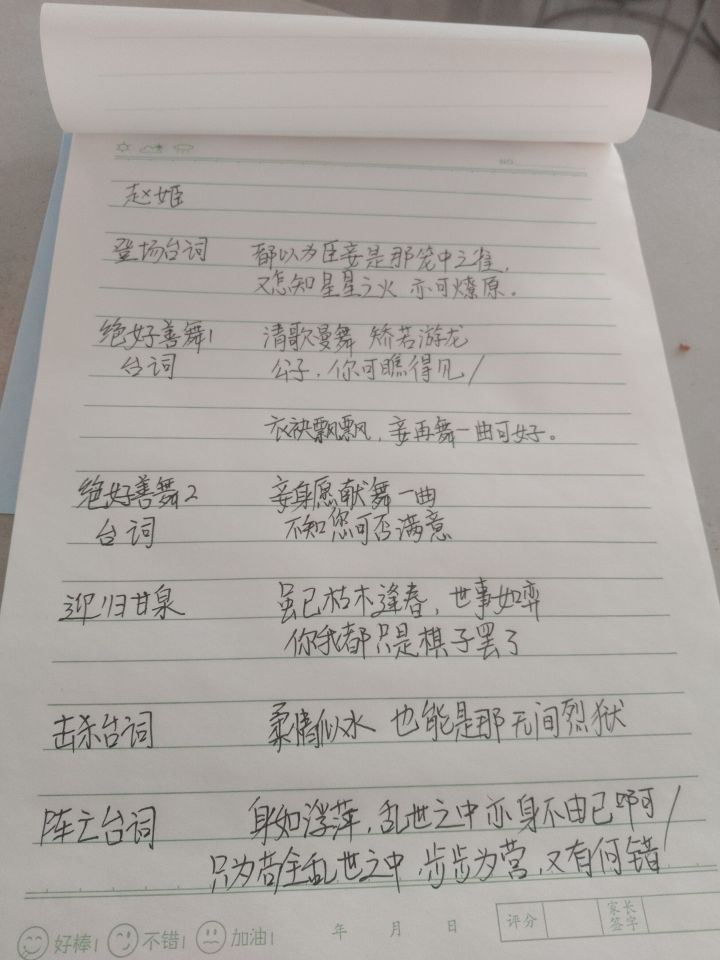 NO.
赵姬
登场台词 都以为臣妾是那笼中之雀，
又怎知星星之火 亦可燎原。
绝好善舞1 清歌曼舞 矫若游龙
台词 公子，你可瞧得见/
衣袂飘飘，妾再舞一曲可好。
绝好善舞2 妾身愿献舞一曲
台词 不知您可否满意
迎归甘泉 虽已枯木逢春，世事如弈
你我都只是棋子罢了
击杀台词 柔情似水 也能是那无间烈狱
阵亡台词 身如浮萍，乱世之中亦身不由己啊/
只为苟全乱世之中，步步为营，又有何错
好棒! 不错! 加油! 年 月 日 评分 家长签字